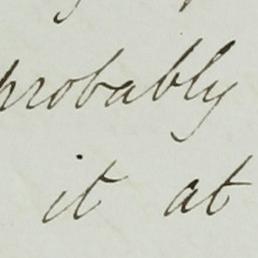 probably
it at